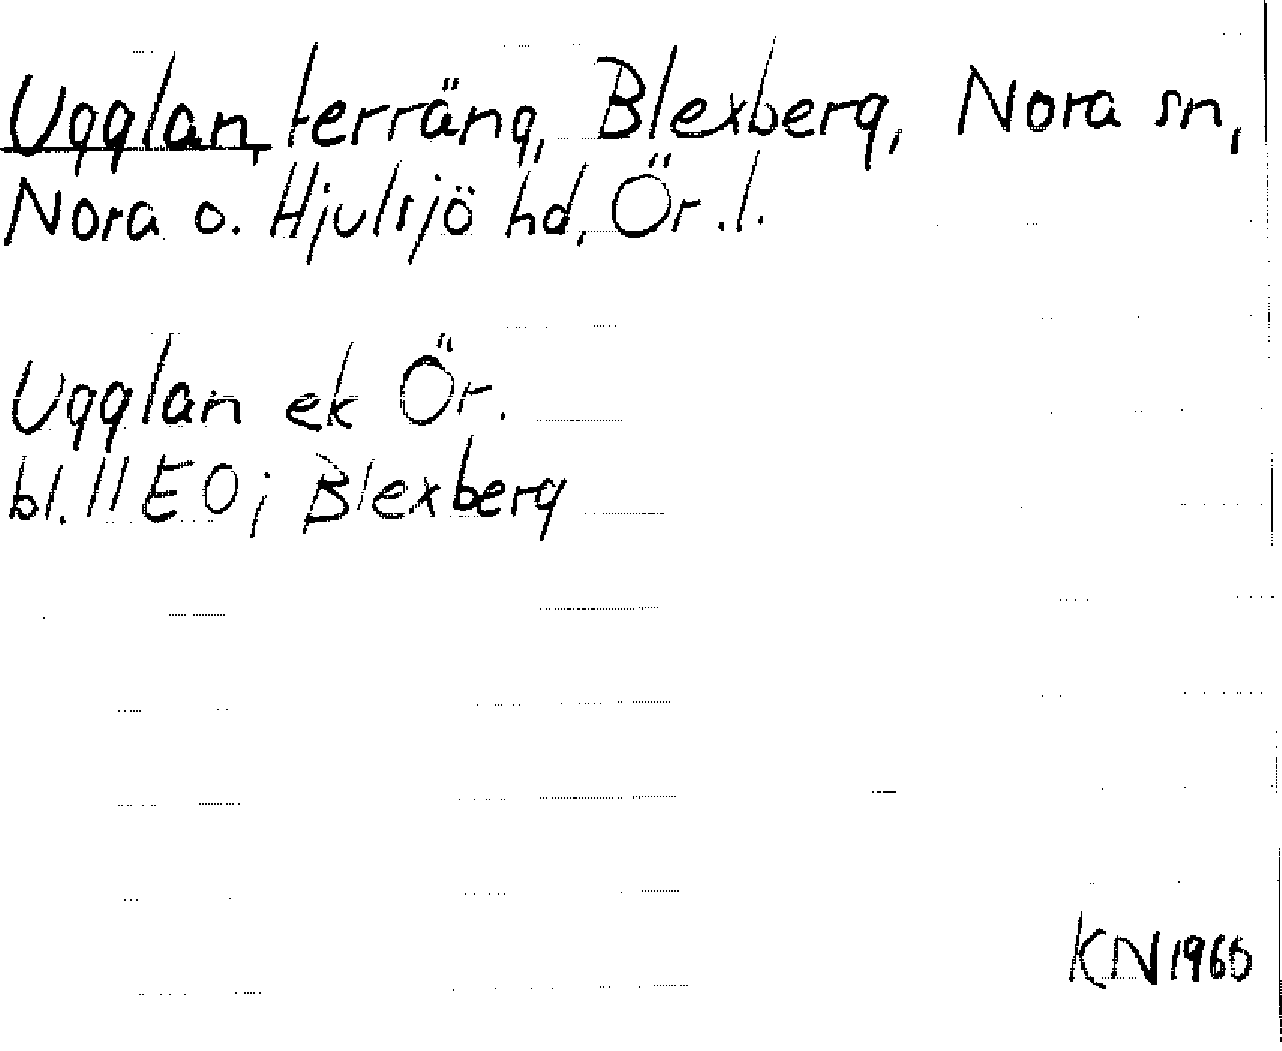 Ugglan, terräng, Blexberg, Nora sn,
Nora o. Hjulsjö hd, Ör.l.
Ugglan ek Ör.
bl. 11 EO; Blexberg
KN 1960